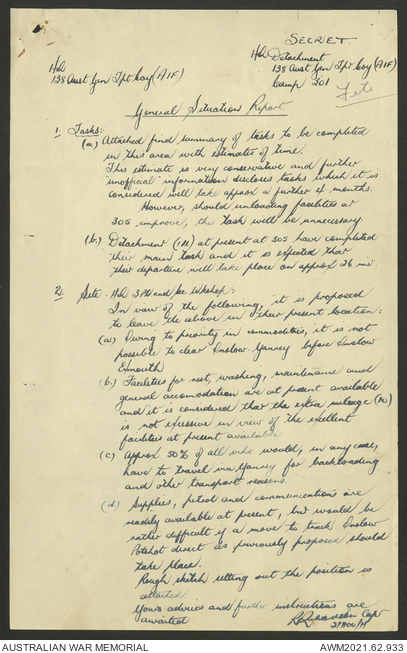 SECRET.
HQ
138 Aust Gen Tpt Coy (AIF)
HQ Detachment
138 Aust Gen Tpt Coy (AIF)
Camp 301
General Situation Report
1. Tasks:-
(a) Attached find summary of tasks to be completed
in this area with estimates of time.
This estimate is very conservative and further
unofficial information discloses tasks which it is
considered will take approx a further 4 months.
However, should unloading facilities at
305 improve, the task will be unnecessary
(b.) Detachment at present at 305 have completed
their main task and it is expected that
their departure will take place on approx 26
2. Site - HQ and
In view of the following, it is proposed
to leave the above in their present location:
(a) Owing to priority in commodities, it is not
possible to clear Onslow-Yanrey before Onslow
Exmouth
(b) Facilities for rest, washing, maintenance and
general accomodation are at present available
and it is considered that the extra mileage
is not exessive in view of the exellent
facilities at present available.
(c) Approx 50% of all vehs would, in any case,
have to travel via Yanrey for backloading
and other transport reasons.
(d) Supplies, petrol and communications are
readily available at present, but would be
rather difficult if a move to track Onslow
Potshot direct as previously proposed should
take place.
Rough sketch setting out the position is
attached.
Your advice and further instructions are
awaited
Capt
AUSTRALIAN WAR MEMORIAL
AWM2021.62.933